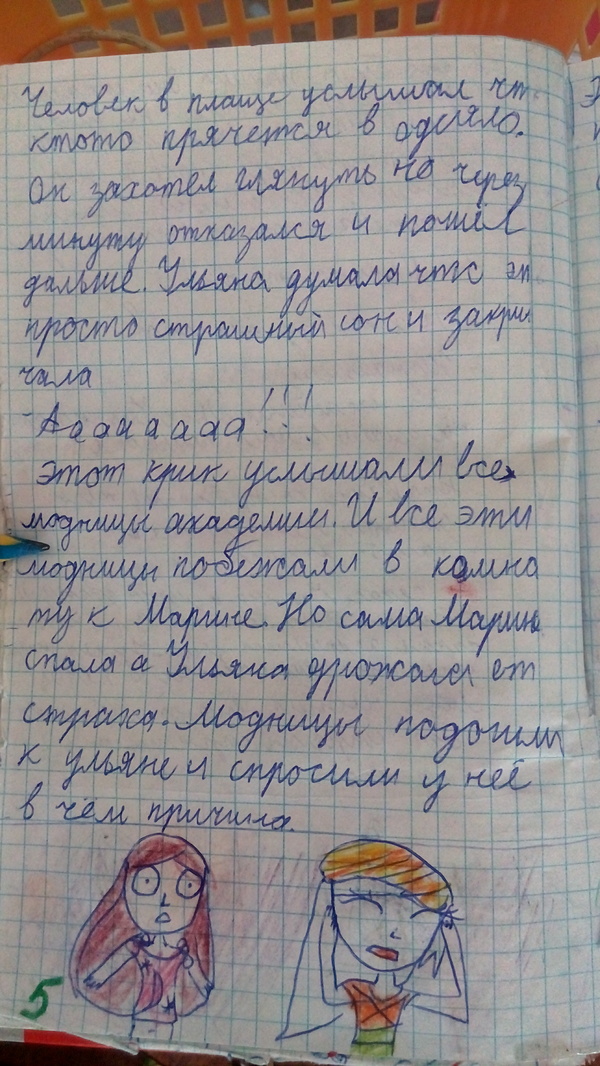 Человек в плаще услышал чт
ктото прячется в одеяло.
Он захотел глянуть но через
минуту отказался и пошёл
дальше. Ульяна думала что эт
просто страшный сон и закри
чала
- Ааааааааа!!!
этот крик услышали все
модницы академии. И все эти
модницы побежали в комна
ту к Марине. Но сама Марина
спала а Ульяна дрожала от
страха. Модницы подошли
к ульяне и спросили у неё
в чём причина.
5